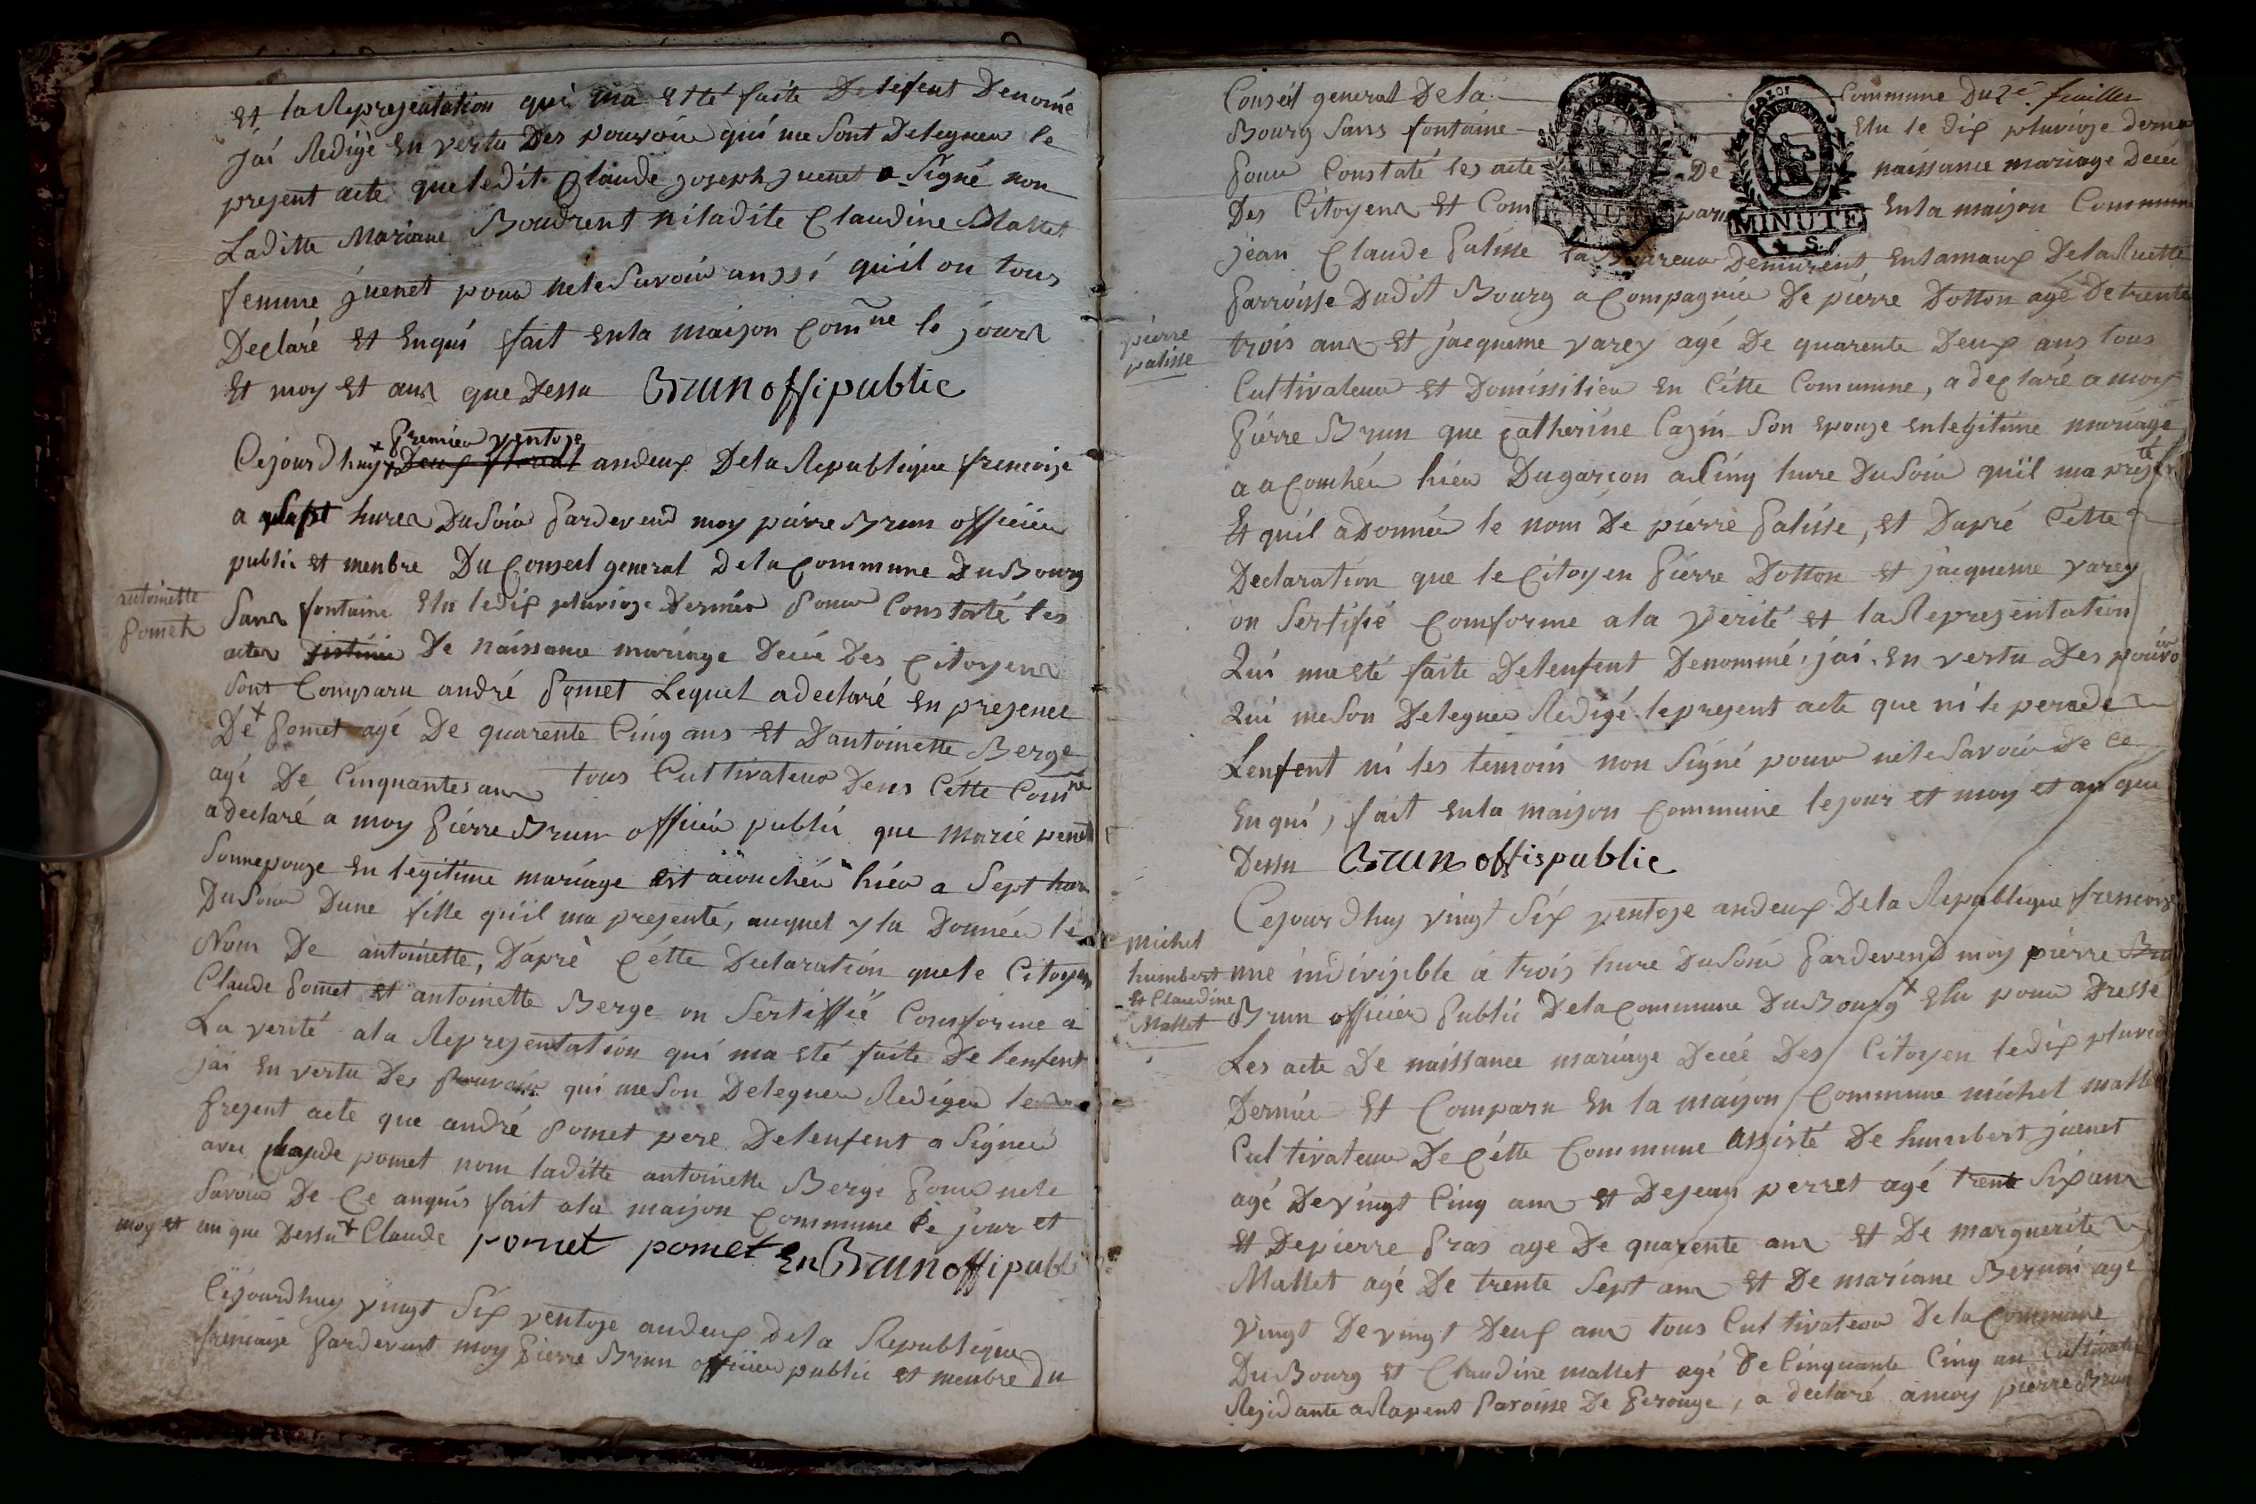 Et la Representation qui ma Etté faite De lefent Denomé
jai Redigé En vertu Des pouvoir qui me Sont Delegueu le
present acte que ledit Claude joseph juenet a Signé non
Laditte Mariane Boudrent ni ladite Claudine Mallet
femme juenet pour nele Savoir aussi quil on tous
Declaré Et Enqui fait Enla maison Comne le jour
Et moy Et an que Dessu Brun offi public
Premier ventose
Cejourdhuy Deux floreal andeux Dela Republique frencoise
a Sept hure DuSoir Pardevend moy pierre Brun officier
public Et menbre Du Conseil general Dela Commune DuBourg
antoinette
Pomet
Sans fontaine Elu ledix pluviose Dernier Pour Constaté les
actes De naissance mariage Decée Des Citoyens
Sont Comparu andré Pomet Lequel a declaré En presence
De + Pomet agé De quarente Cinq ans Et D'antoinette Berge
agé De Cinquantes an tous Cultivateur Dens Cétte Comne
a declaré a moy Pierre Brun officier public que marie
Sonnepouze En legitime mariage Est acouchée hier a Sept hure
DuSoir Dune fille qu'il ma presenté, auquel y la Donnée le
Nom De antoinette, D'aprè Cétte Declaration quele Citoyen
Claude Pomet Et antoinette Berge on Sertiffié Comforme a
La verité ala Representation qui ma Eté faite De lenfent
jai En vertu Des Pouvoir qui meSon Delegueu Redigeu le
Present acte que andré Pomet pere Delenfent a Signeé
avec Claude pomet nom laditte antoinette Berge Pour nele
Savoir De Ce anquis fait ala maison Commune le jour et
moy et an que Dessu + Claude pomet pomet En Brun offi publi
Cejourdhuy vingt Six ventose andeux dela Republique
frencaise Pardevent moy Pierre Brun officier public et menbre Du
Conseil general Dela Commune Du 2e feuillet
Bourg Sans fontaine Elu le dix pluviose dernie
Pour Constaté les acte De naissance mariage Decée
Des Citoyens Et Com paru Enla maison Commune
MINUTE
MINUTE
jean Claude Palisse Demurent Enlamaux DelaRuette
Parroisse Dudit Bourg a Compagnier De pierre Dotton agé De trente
pierre
palisse
trois ans Et jacqueme varey agé De quarente Deux ans tous
Cultivateur Et Domissilier En Cétte Commune, a declaré a moy
Pierre Brun que Catherine Cazin Son epouze Enlegitime mariage
a acouchée hier Dugarçon a Cinq hure DuSoir qu'il ma presté
Et quil adonnée le nom De pierre Palisse, Et Dapré Cétte
Declaration que le Citoyen Pierre Dotton Et jacqueme varey
on Sertifié Comforme ala verité Et la Representation
Qui ma Eté faite Delenfent Denommé, jai En vertu Des pouvoir
Qui meSon Delegueu Redigé le present acte que ni le perede
Lenfent ni les temoin non Signé pour nele Savoir De Ce
Enqui, fait Enla maison Commune lejour et moy et an que
Dessu Brun offis public
Cejourdhuy vingt Six ventose andeux Dela Republique frencois
michel
humbert
Et Claudine
Mallet
une indivisible à trois hure DuSoir Pardevend moy pierre Bru
Brun officier Public Dela Commune DuBourg + Elu pour Dressé
Les acte De naissance mariage Decée Des Citoyen ledix pluvio
Dernier Et Comparu En la maison Commune michel malle
Cultivateur De Cétte Commune assisté De humbert juenet
agé Devingt Cinq ans et Dejean perret agé trente Six ans
Et Depierre Pras agé De quarente ans Et De marguerite
Mallet agé De trente Sept ans Et De mariane Bernin agé
vingt De vingt Deux ans tous Cultivateur Dela Commune
DuBourg Et Claudine mallet agé De Cinquante Cinq an Cultivate
Residante aRapent Paroisse De Perouge, a declaré amoy pierre Brun